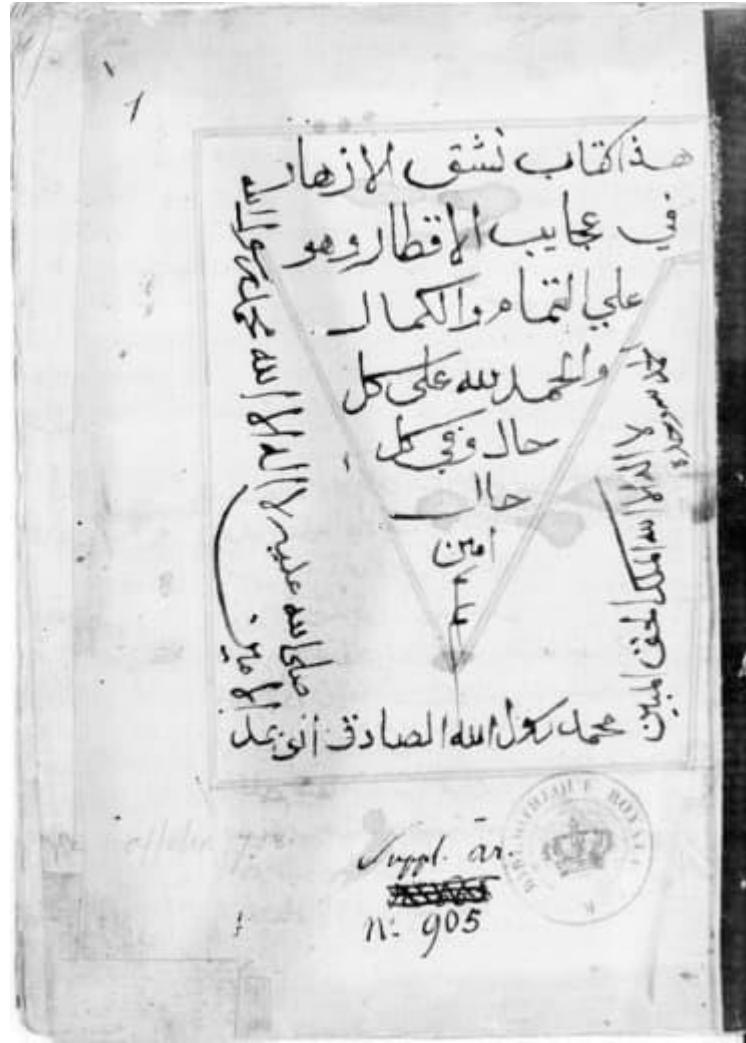 هذا كتاب نشق الازهار
في عجايب الاقطار وهو
علي التمام والكمال
والحمد لله على كل
حال وفي كل
حال
امين
لا اله الا الله الملك الحق المبين
محمد رسول الله الصادق
لا اله الا الله محمد رسول الله
صلى الله عليه
الامين
BIBLIOTHEQUE ROYALE
Suppl. ar.
n: 905
1